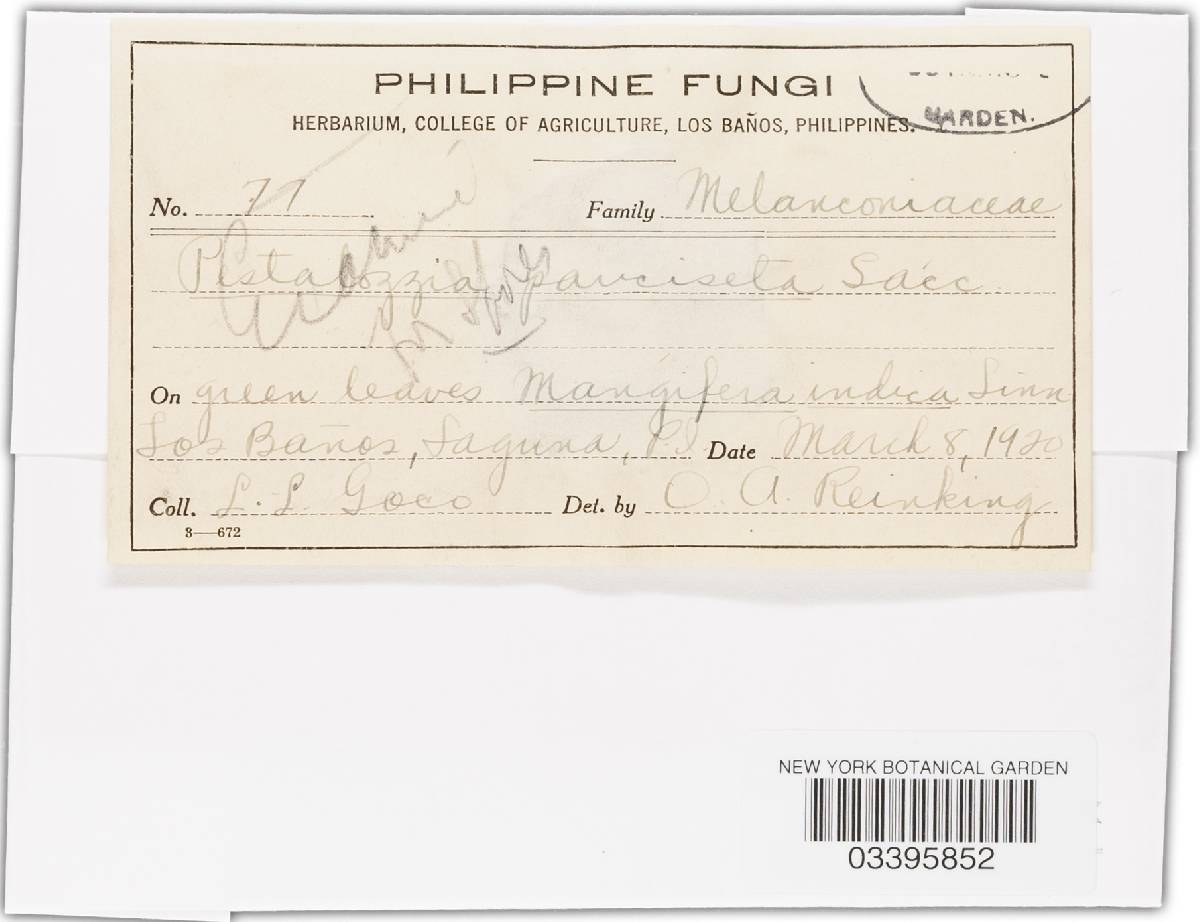 PHILIPPINE FUNGI
GARDEN.
HERBARIUM, COLLEGE OF AGRICULTURE, LOS BAÑOS, PHILIPPINES.
No. 77 Family Melanconiaceae
Pestalozzia pauciseta Sacc
for spores
On green leaves Mangifera indica Linn
Los Baños, Laguna, P.I. Date March 8, 1920
Coll. L. L. Goco Det. by O. A. Reinking
3—672
NEW YORK BOTANICAL GARDEN
03395852